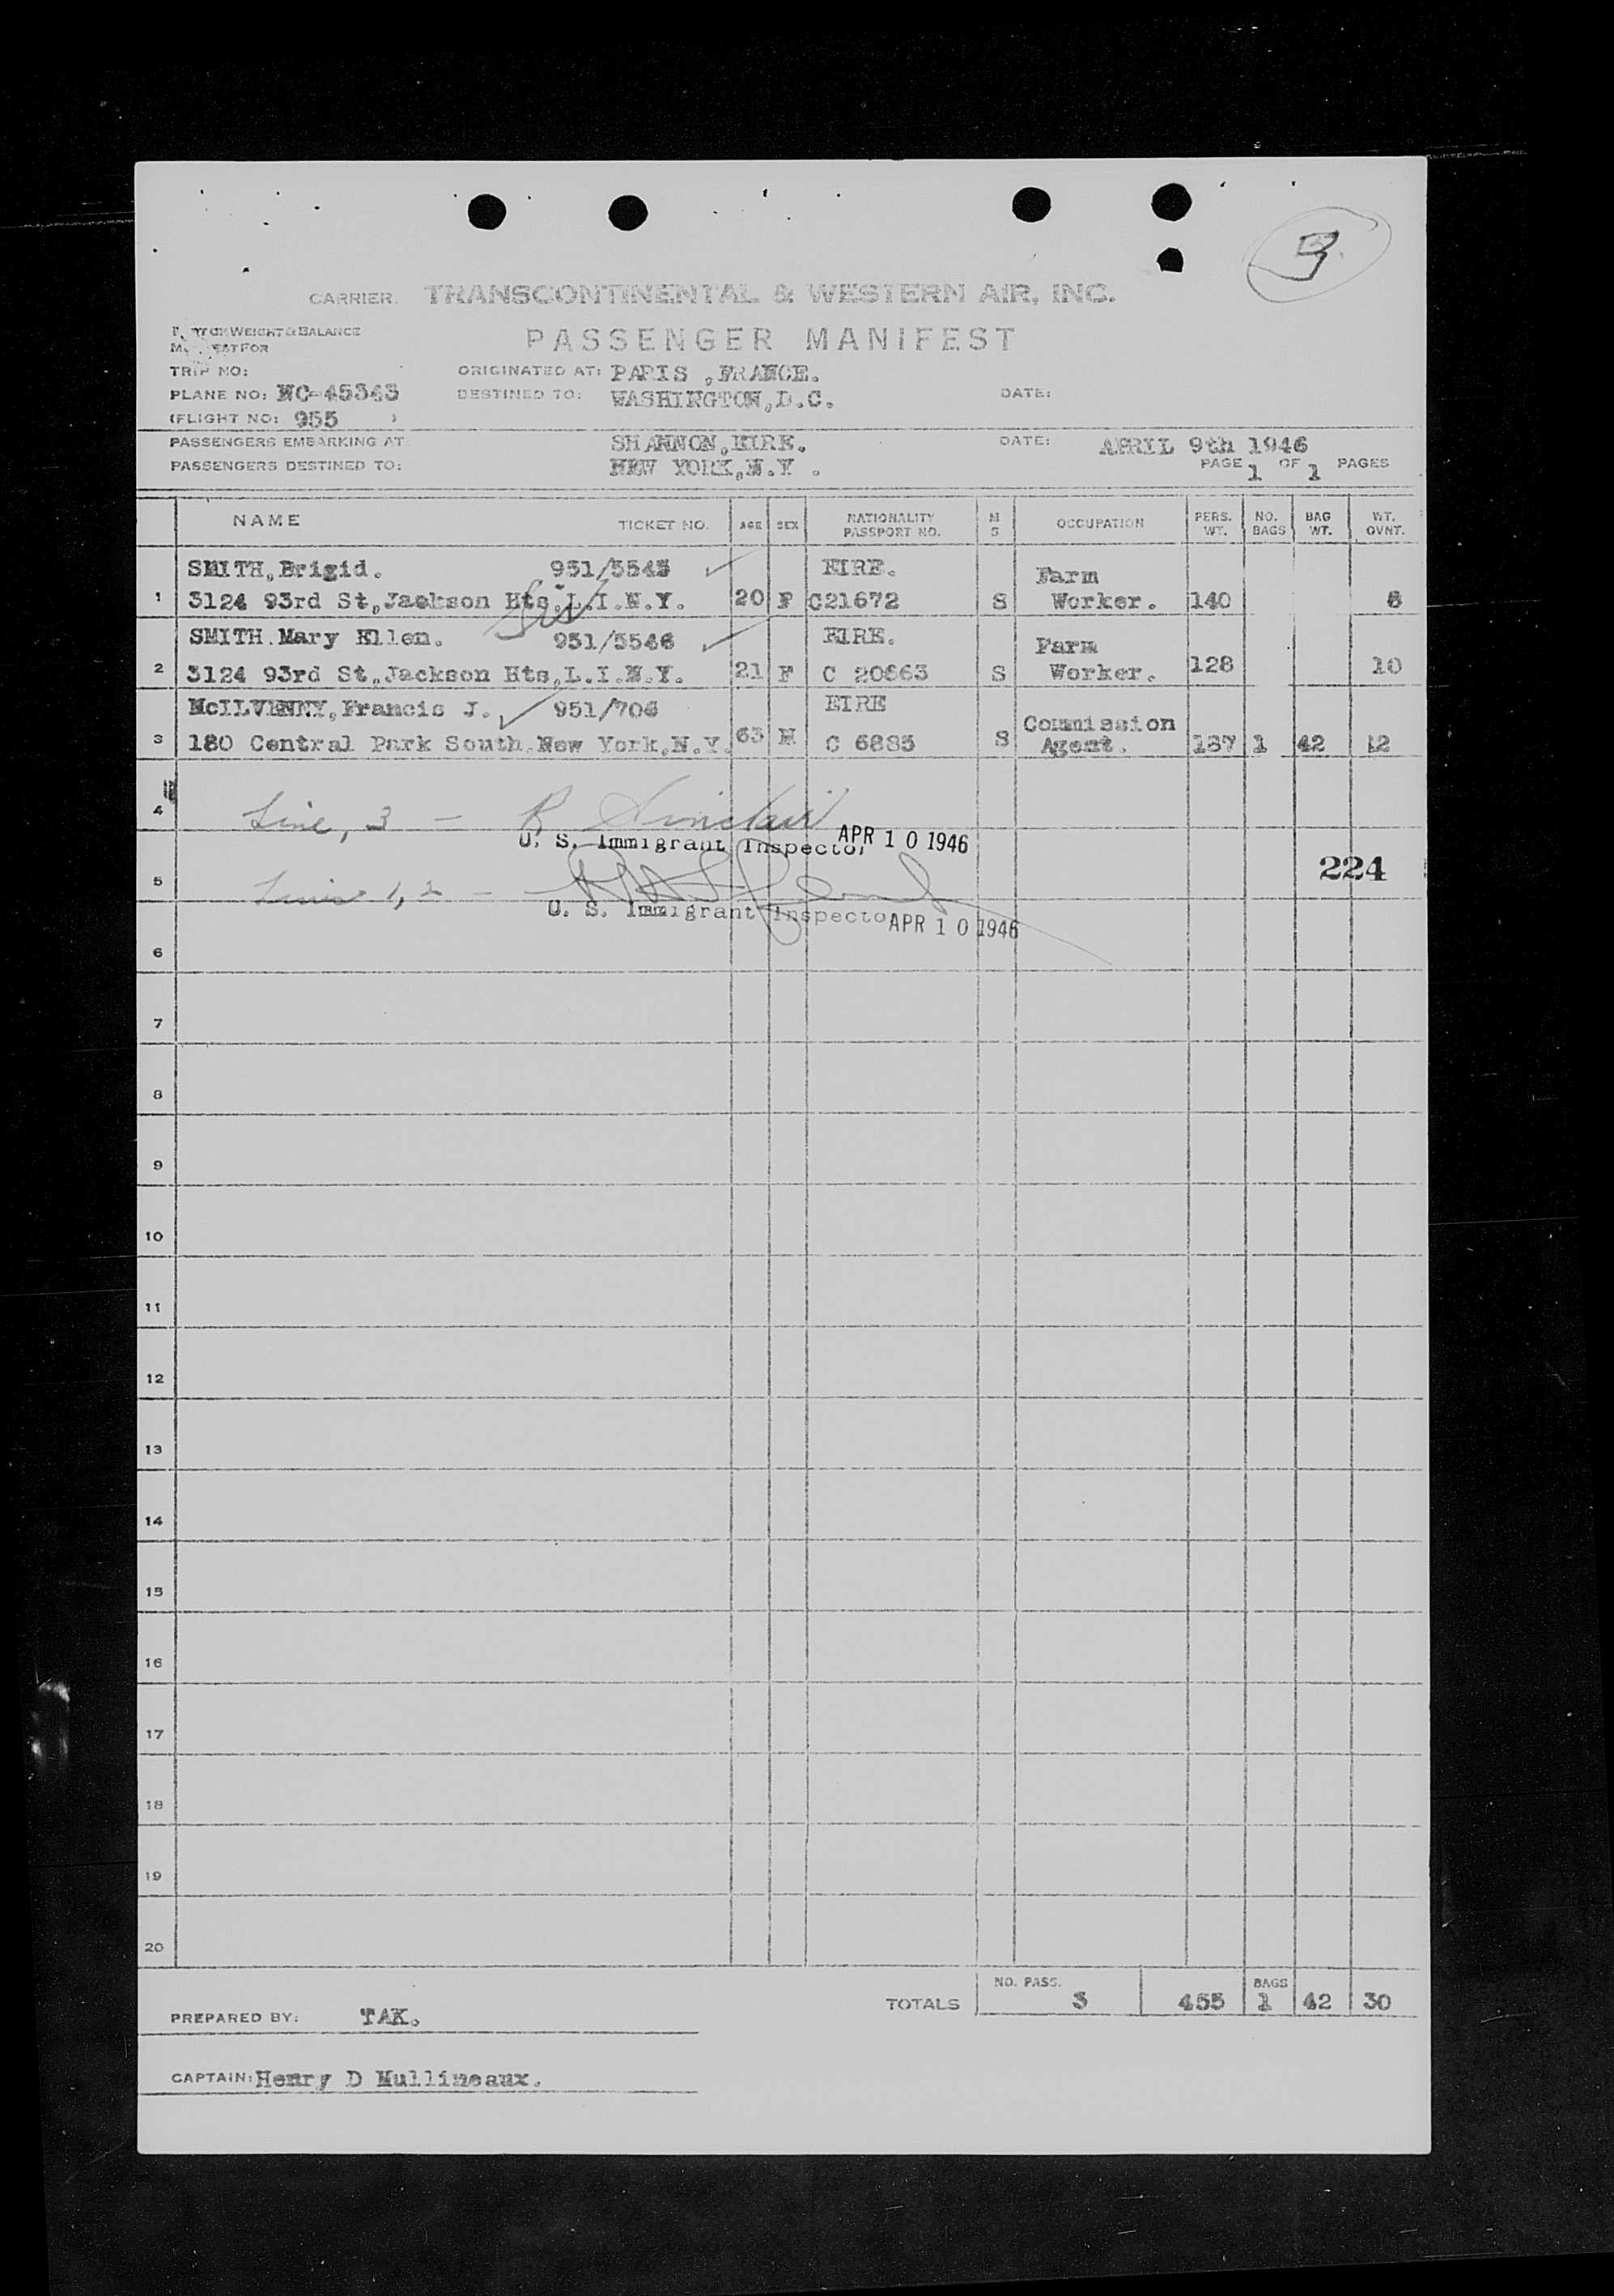 3
CARRIER. TRANSCONTINENTAL & WESTERN AIR, INC.
PASSENGER MANIFEST
WEIGHT & BALANCE
FOR
TRIP NO:
ORIGINATED AT: PARIS ,FRANCE.
PLANE NO: NC-45343
DESTINED TO: WASHINGTON,D.C.
DATE:
(FLIGHT NO: 955 )
PASSENGERS EMBARKING AT SHANNON,EIRE.
DATE: APRIL 9th 1946
PASSENGERS DESTINED TO: NEW YORK,N.Y .
PAGE 1 OF 1 PAGES
NAME TICKET NO. AGE SEX NATIONALITY PASSPORT NO. M S OCCUPATION PERS. WT. NO. BAGS BAG WT. WT. OVNT.
SMITH,Brigid. 951/5545 EIRE. Farm
1 3124 93rd St,Jackson Hts,L.I.N.Y. 20 F C21672 S Worker. 140 8
SMITH.Mary Ellen. 951/5546 EIRE. Farm
2 3124 93rd St,Jackson Hts,L.I.N.Y. 21 F C 20663 S Worker. 128 10
McILVENNY,Francis J. 951/706 EIRE Commission
3 180 Central Park South,New York,N.Y. 63 M C 6885 S Agent. 187 1 42 12
4 Line, 3 - R Sinclair
U. S. Immigrant Inspector APR 10 1946
224
5 Lines 1, 2 -
U. S. Immigrant Inspector APR 10 1946
6
7
8
9
10
11
12
13
14
15
16
17
18
19
20
TOTALS NO. PASS. 3 455 BAGS 1 42 30
PREPARED BY: TAK.
CAPTAIN: Henry D Mullineaux.